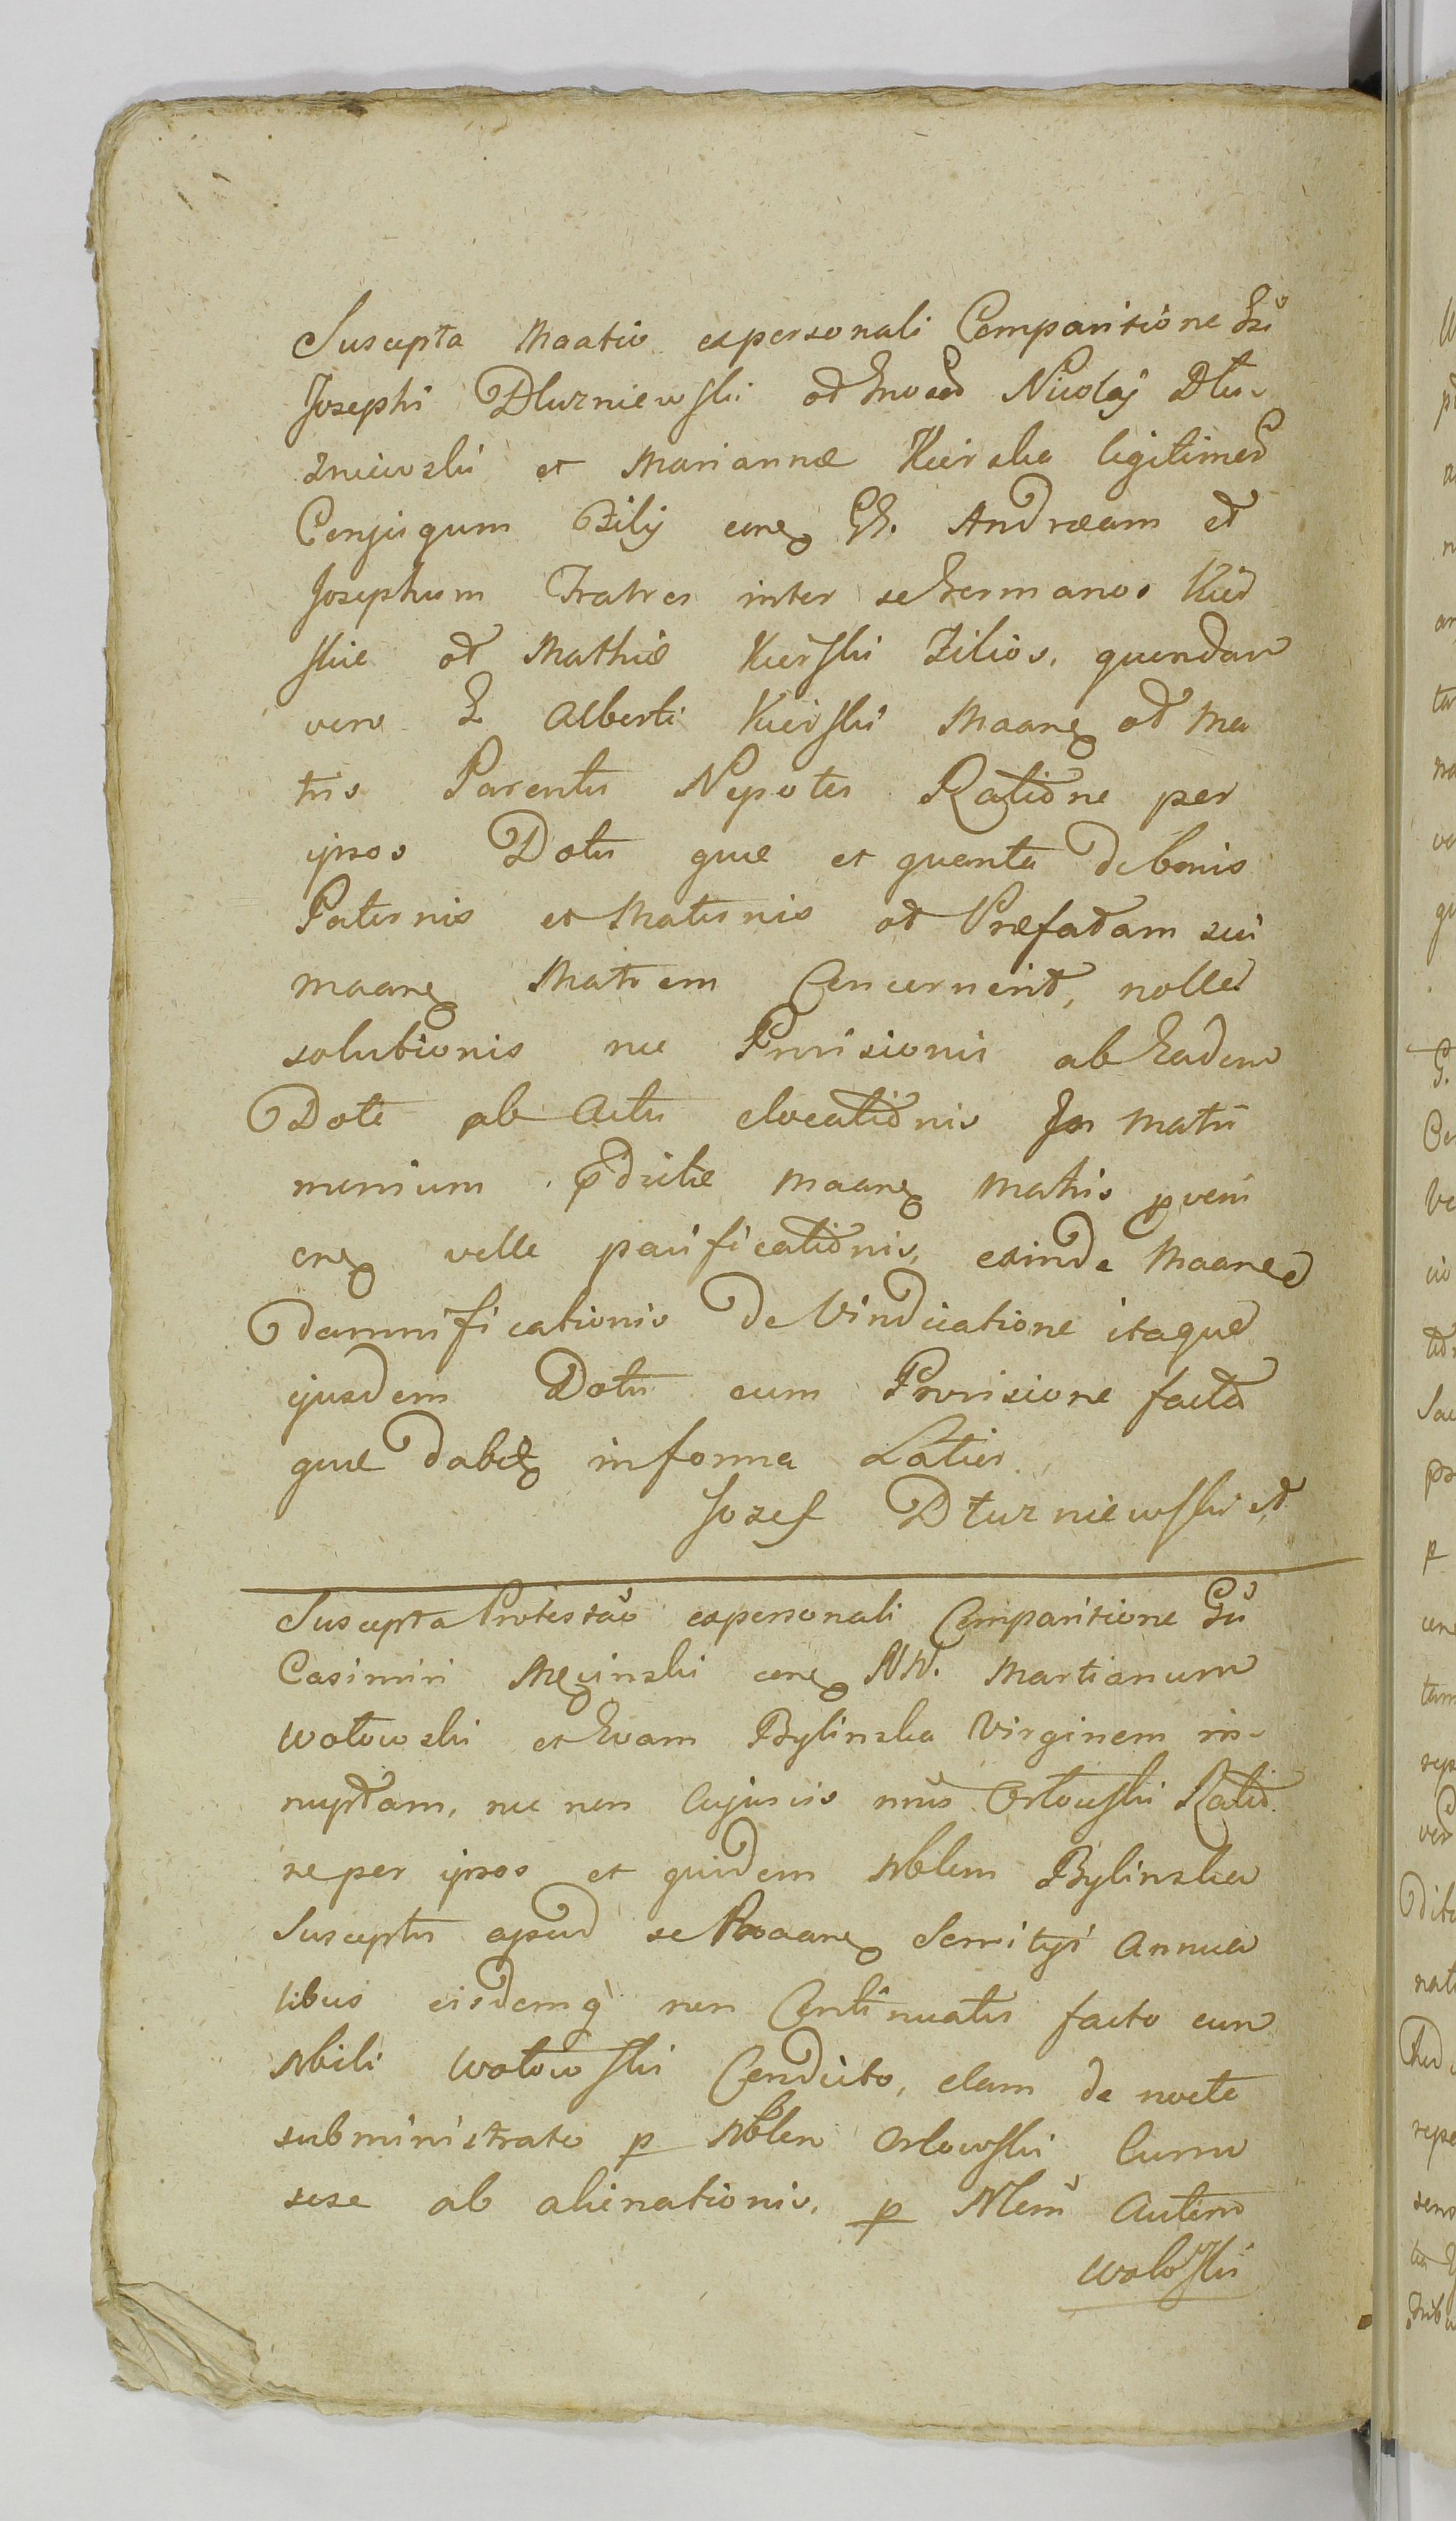 Suscepta Maatio expersonali Comparitione Gsi
Josephi Dluzniewski od Nicolaj Dlu-
zniewski et Mariannæ Kierska legitimor
Conjugum Filij conq GG. Andræam et
Josephum Fratres inter se Germanos Kier
skie od Mathiæ Kierski Filios, quondam
vero G Alberti Kierski Maanq od Ma
tris Parentis Nepotes Ratione per
ipsos Dotis quæ et quanta de bonis
Paternis et Maternis od Præfatam sui
maanq Matrem Concernent, nolle
solutionis nec Provisionis ab Eadem
Dote ab Actu elocationis In Matri
monium pdictæ maanq Matris pveni
enq velle pacificationis, exinde Maane
damnificationis De Vindicatione itaque
ejusdem Dotis cum Provisione facta
quæ dabitq in forma Latior
Jozef Dłuzniewski
Suscepta Protestao expersonali Comparitione Gsi
Casimiri Męcinski conq NN. Martianum
Wołowski et Evam Bylinska Virginem in-
nuptam, nec non Cujusvis nnis Orłowski Ratio
ne per ipsos et quidem Nblem Bylinska
Susceptis apud se Praanq Servitijs Annua
libus eisdemq non Continuatis facto cum
Nbili Wołowski Conducto, clam de nocte
subministrato p Nblem Orlowski Curru
sese ab alienationis, p Nlem Autem
Woloski